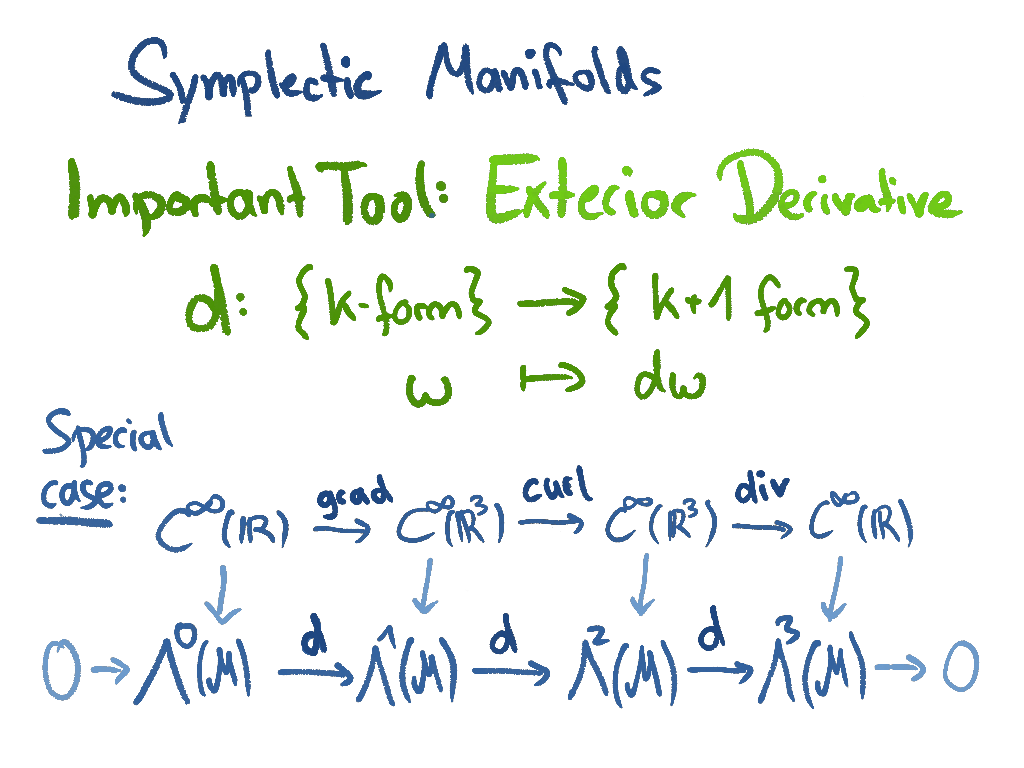 Symplectic Manifolds
Important Tool: Exterior Derivative
d: {k-form} → {k+1 form}
ω ↦ dω
Special
case:
C^∞(ℝ) grad→ C^∞(ℝ³) curl→ C^∞(ℝ³) div→ C^∞(ℝ)
↓ ↓ ↓ ↓
0 → Λ⁰(M) d→ Λ¹(M) d→ Λ²(M) d→ Λ³(M) → 0